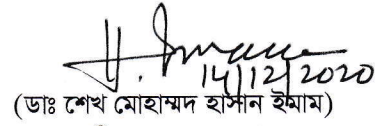 H. Imam
14/12/2020
(ডাঃ শেখ মোহাম্মদ হাসান ইমাম)